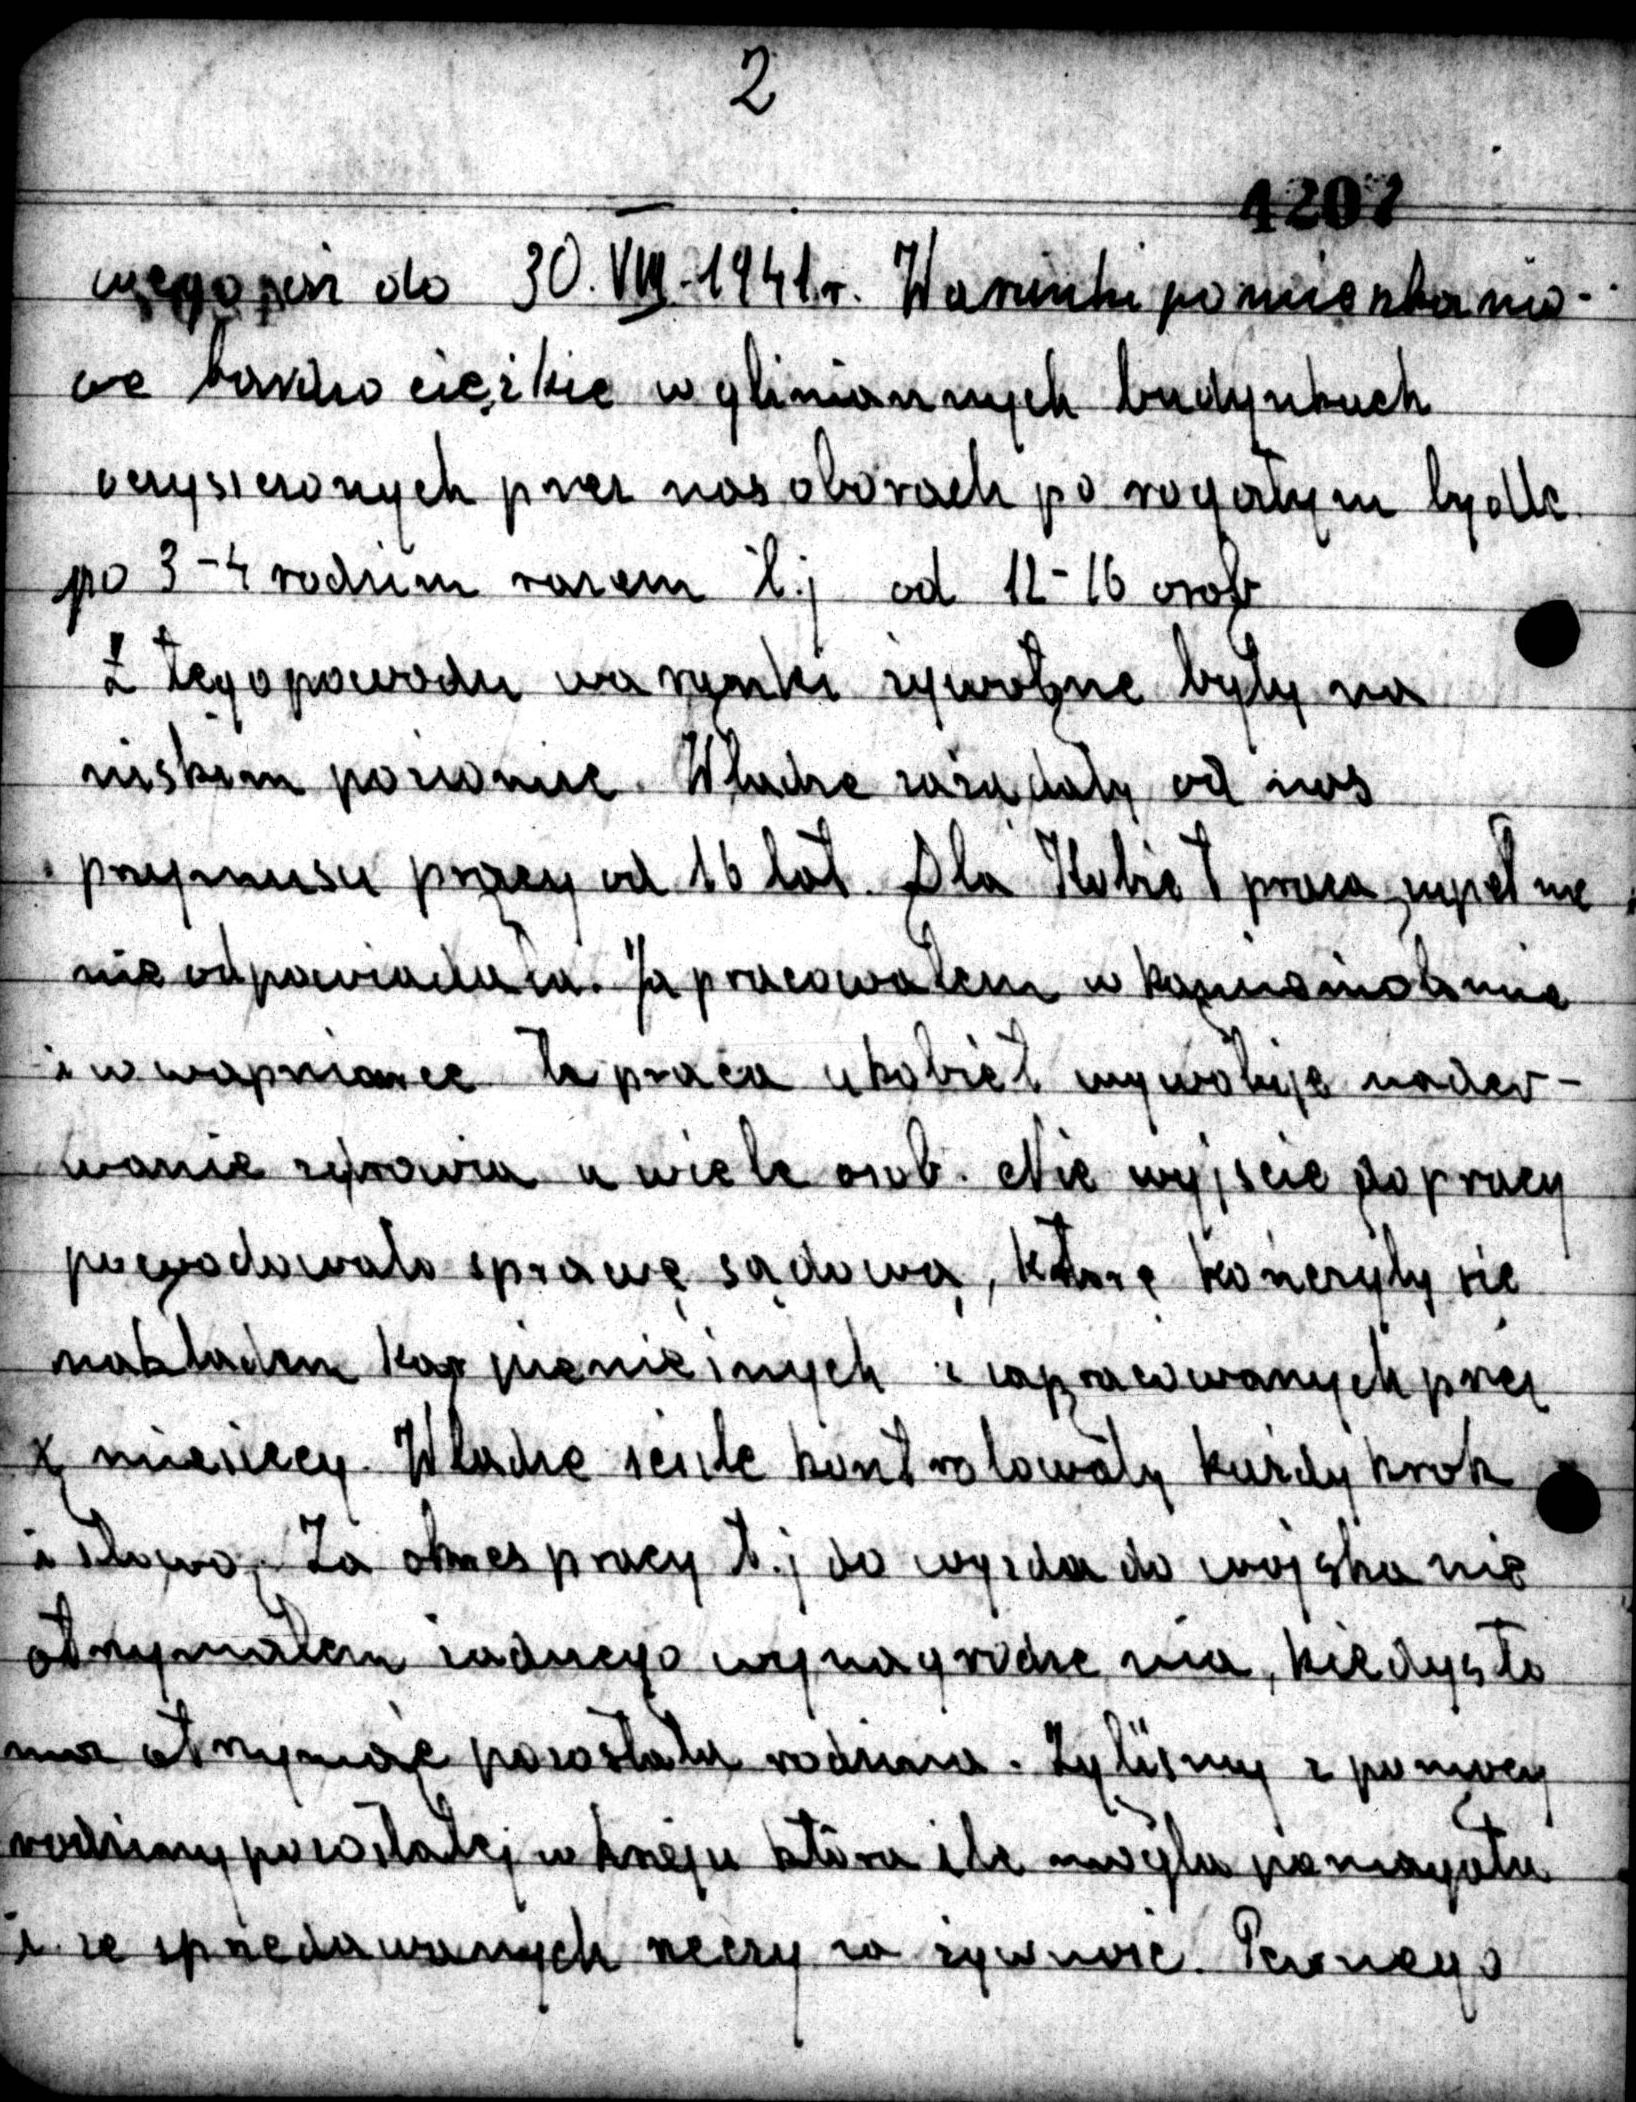 2
4207
do 30.VIII.1941.r. Warunki pomieszkanio-
we bardzo ciężkie w gliniannych budynkach
oczyszczonych przez nas oborach po rogatym bydle.
po 3-4 rodzim razem t.j od 12-16 osob
Z tego powodu warunki żywotne były na
niskim poziomie. Władze zażądały od nas
przymusu pracy od 16 lat. Dla Kobiet praca zupełnie
nie odpowiadała. Ja pracowałem w kamieniołomie
i w wapniarce ta praca u kobiet wywołuje nader-
wanie zdrowia u wiele osob. Nie wyjście do pracy
powodowało sprawę sądową, które kończyły sie
nakładem kar pieniężnych zapracowanych przez
miesięcy. Władze ściśle kontrolowały każdy krok
i słowo. Za okres pracy t.j do wyjazdu do wojska nie
otrzymałem żadnego wynagrodzenia, kiedyś to
ma otrzymać pozostała rodzina. Żyliśmy z pomocy
rodziny pozostałej w kraju która ile mogła pomagała
i ze sprzedawanych rzeczy za żywność. Pewnego